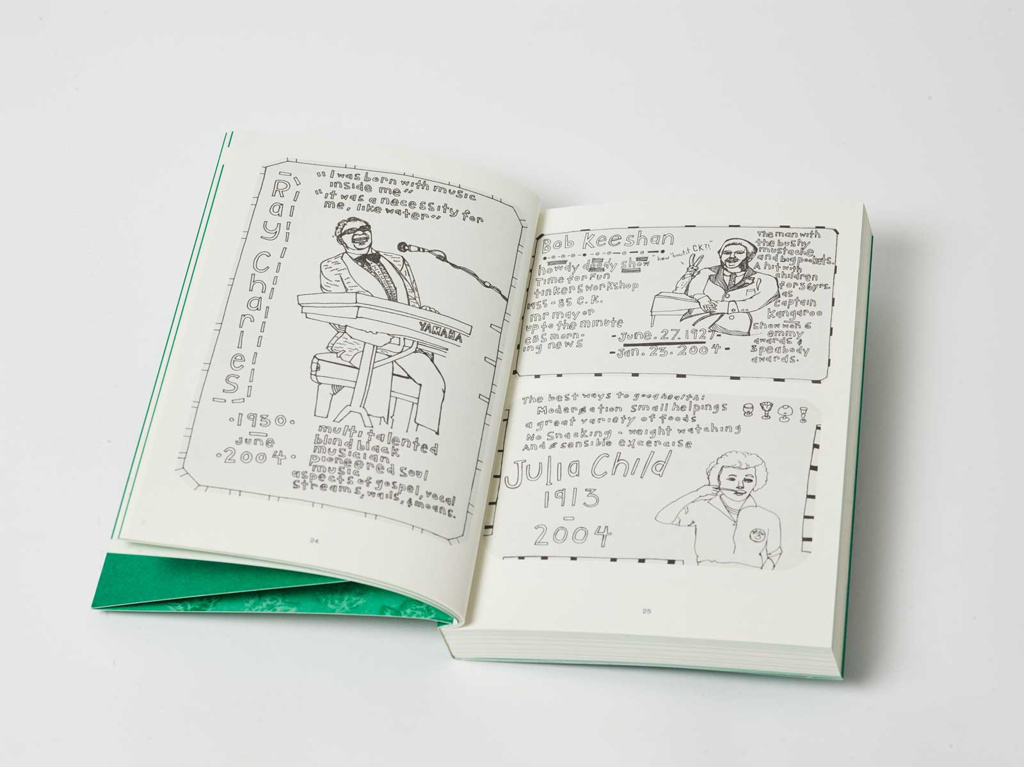 Ray Charles
"I was born with music
inside me"
"it was a necessity for
me, like water"
YAMAHA
·1930·
June
·2004·
multi talented
blind black
musician
pioneered soul
music
aspects of gospel, vocal
streams, wails, & moans.
24
Bob Keeshan
howdy show
Time for Fun
tinkers workshop
1955-85 C.K.
mr mayor
up to the minute
CBS morn-
ing news
-June.27.1927-
-Jan.23.2004-
The man with
the bushy
mustache
and big pockets.
A hit with
children
for 36 yrs.
as
Captain
Kangaroo
Show won 6
emmy
awards &
3 peabody
awards.
The best ways to good health:
Modergation small helpings
a great variety of foods
No Snacking - weight watching
And sensible excercise
Julia Child
1913
-
2004
25